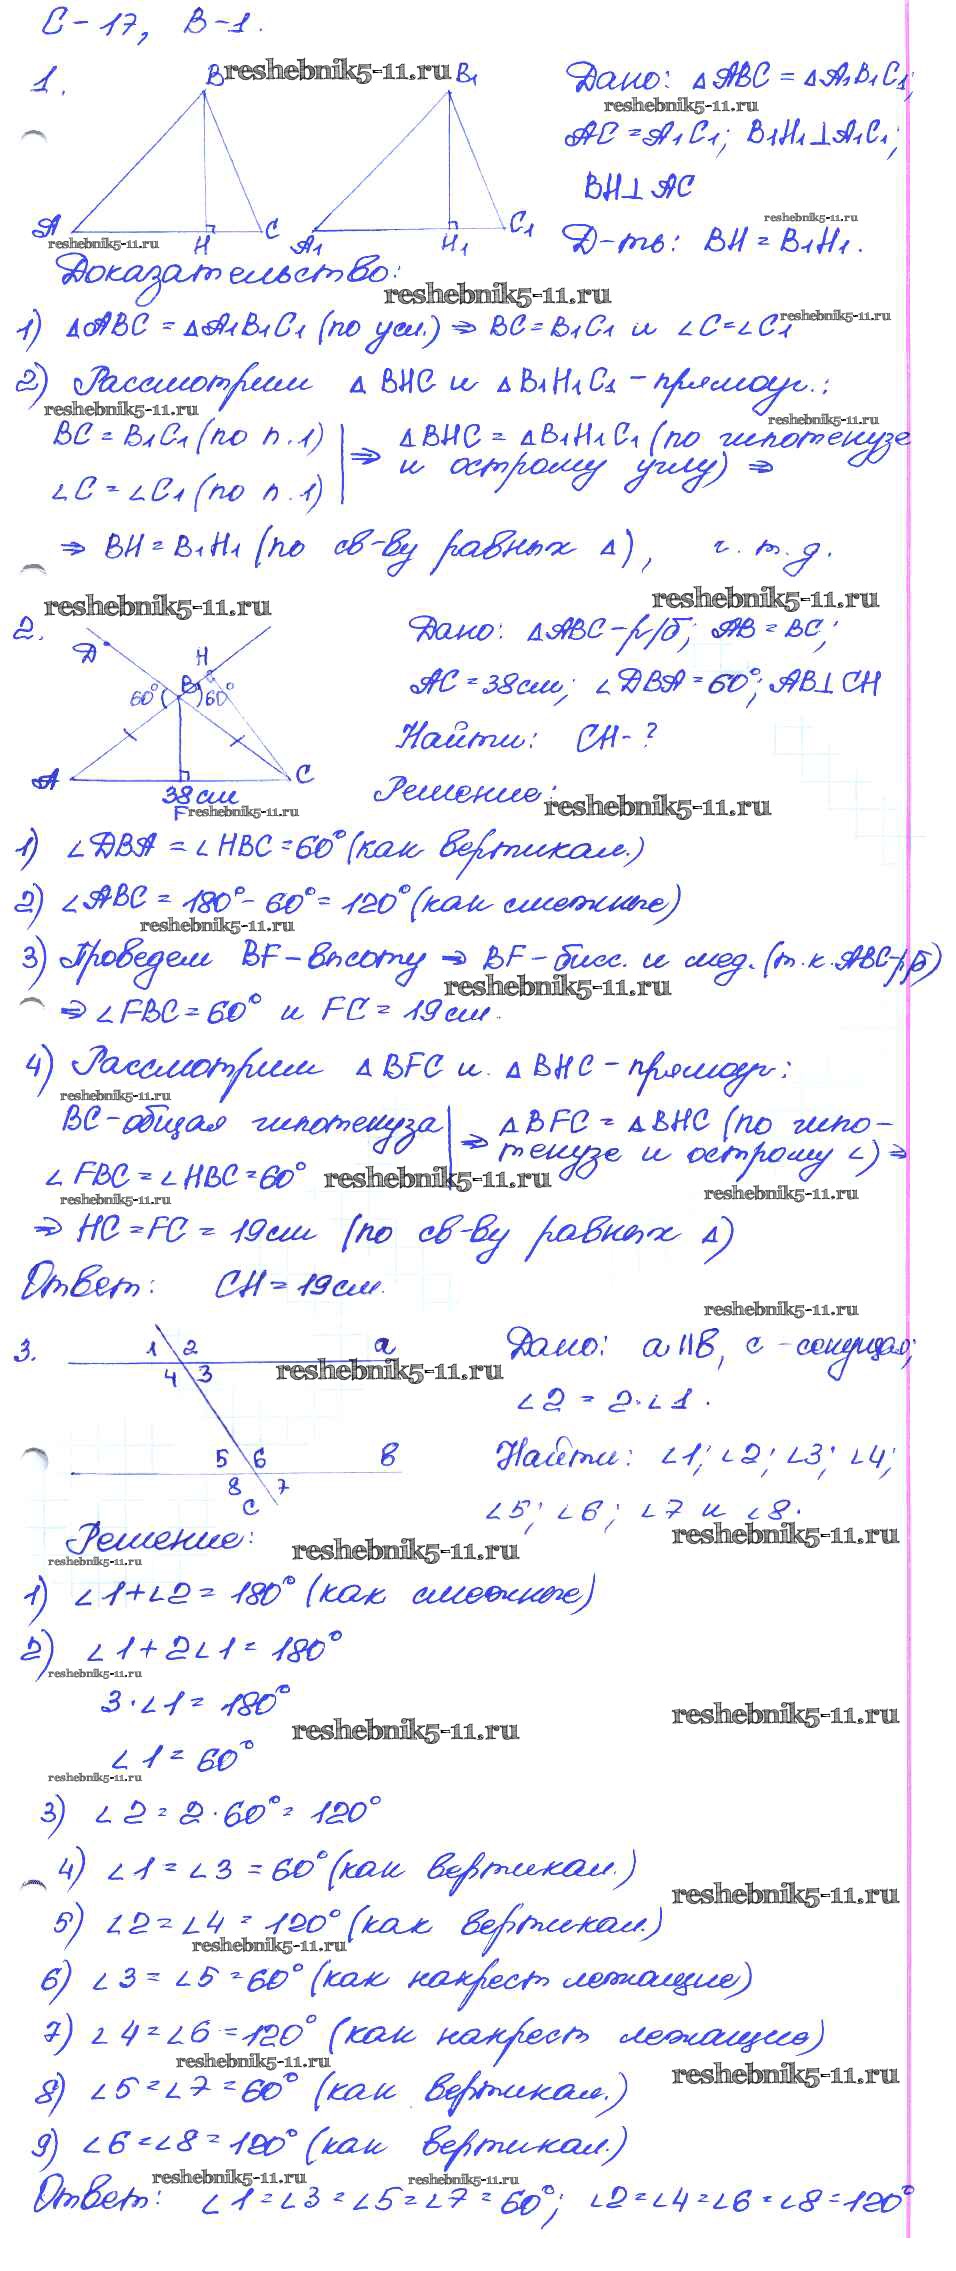 С-17, В-1.
1.
B
reshebnik5-11.ru
B1
Дано: ΔABC = ΔA1B1C1;
reshebnik5-11.ru
AC = A1C1; B1H1⊥A1C1;
BH⊥AC
reshebnik5-11.ru
A
H
C
A1
H1
C1
reshebnik5-11.ru
Д-ть: BH = B1H1.
Доказательство:
reshebnik5-11.ru
reshebnik5-11.ru
1) ΔABC = ΔA1B1C1 (по усл.) ⇒ BC = B1C1 и ∠C = ∠C1
2) Рассмотрим ΔBHC и ΔB1H1C1 - прямоуг.:
reshebnik5-11.ru
reshebnik5-11.ru
BC = B1C1 (по п.1) ⇒ ΔBHC = ΔB1H1C1 (по гипотенузе
∠C = ∠C1 (по п.1) и острому углу) ⇒
⇒ BH = B1H1 (по св-ву равных Δ), ч.т.д.
reshebnik5-11.ru
reshebnik5-11.ru
2.
D
H
B
60°
60°
A
C
38см
F
reshebnik5-11.ru
Дано: ΔABC - р/б; AB = BC;
AC = 38см; ∠DBA = 60°; AB⊥CH
Найти: CH - ?
Решение:
reshebnik5-11.ru
1) ∠DBA = ∠HBC = 60° (как вертикал.)
2) ∠ABC = 180° - 60° = 120° (как смежные)
reshebnik5-11.ru
3) Проведем BF - высоту ⇒ BF - бисс. и мед. (т.к. ABC - р/б)
reshebnik5-11.ru
⇒ ∠FBC = 60° и FC = 19см.
4) Рассмотрим ΔBFC и ΔBHC - прямоуг:
reshebnik5-11.ru
BC - общая гипотенуза ⇒ ΔBFC = ΔBHC (по гипо-
∠FBC = ∠HBC = 60° тенузе и острому ∠) ⇒
reshebnik5-11.ru
reshebnik5-11.ru
reshebnik5-11.ru
⇒ HC = FC = 19см (по св-ву равных Δ)
Ответ: CH = 19см.
reshebnik5-11.ru
3.
1 2
a
4 3
reshebnik5-11.ru
5 6
в
8 7
c
Дано: a||в, c - секущая;
∠2 = 2·∠1.
Найти: ∠1; ∠2; ∠3; ∠4;
∠5; ∠6; ∠7 и ∠8.
Решение:
reshebnik5-11.ru
reshebnik5-11.ru
reshebnik5-11.ru
1) ∠1+∠2 = 180° (как смежные)
2) ∠1 + 2∠1 = 180°
reshebnik5-11.ru
3·∠1 = 180°
reshebnik5-11.ru
reshebnik5-11.ru
∠1 = 60°
reshebnik5-11.ru
3) ∠2 = 2·60° = 120°
4) ∠1 = ∠3 = 60° (как вертикал.)
reshebnik5-11.ru
5) ∠2 = ∠4 = 120° (как вертикал.)
reshebnik5-11.ru
6) ∠3 = ∠5 = 60° (как накрест лежащие)
7) ∠4 = ∠6 = 120° (как накрест лежащие)
reshebnik5-11.ru
reshebnik5-11.ru
8) ∠5 = ∠7 = 60° (как вертикал.)
9) ∠6 = ∠8 = 120° (как вертикал.)
reshebnik5-11.ru
reshebnik5-11.ru
Ответ: ∠1 = ∠3 = ∠5 = ∠7 = 60°; ∠2 = ∠4 = ∠6 = ∠8 = 120°